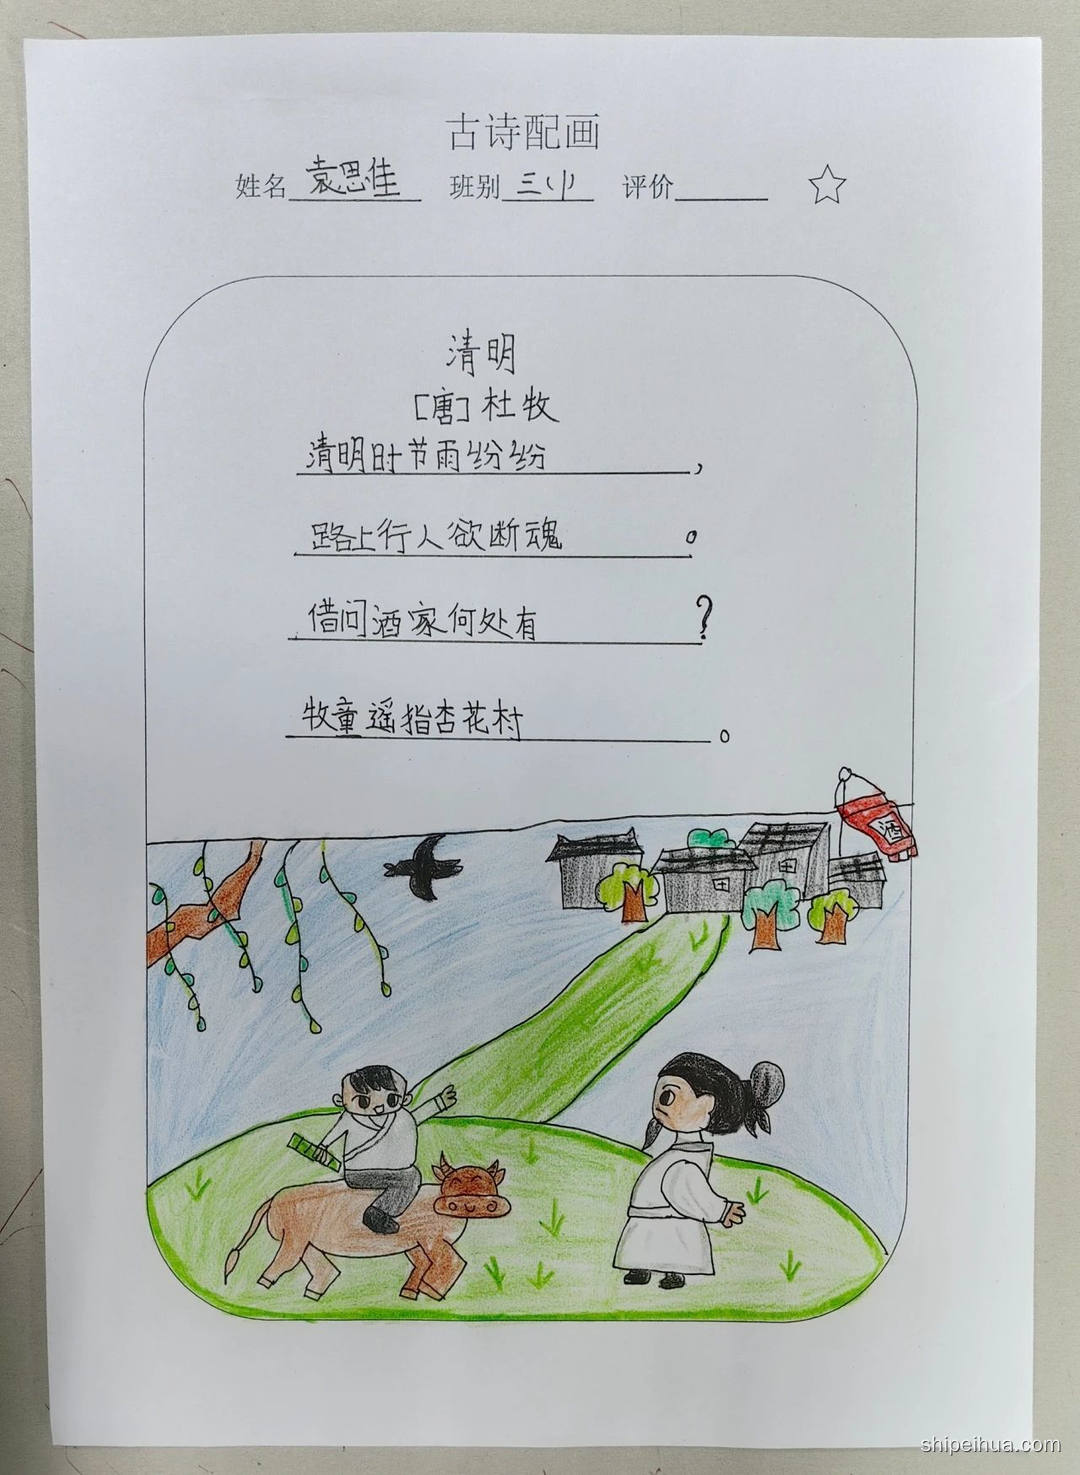 古诗配画
姓名 袁思佳 班别 三(1) 评价
清明
[唐] 杜牧
清明时节雨纷纷,
路上行人欲断魂。
借问酒家何处有?
牧童遥指杏花村。
酒
shipeihua.com